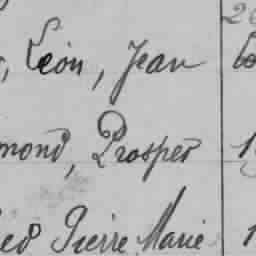 , Léon, Jean
mond, Prosper
Pierre Marie